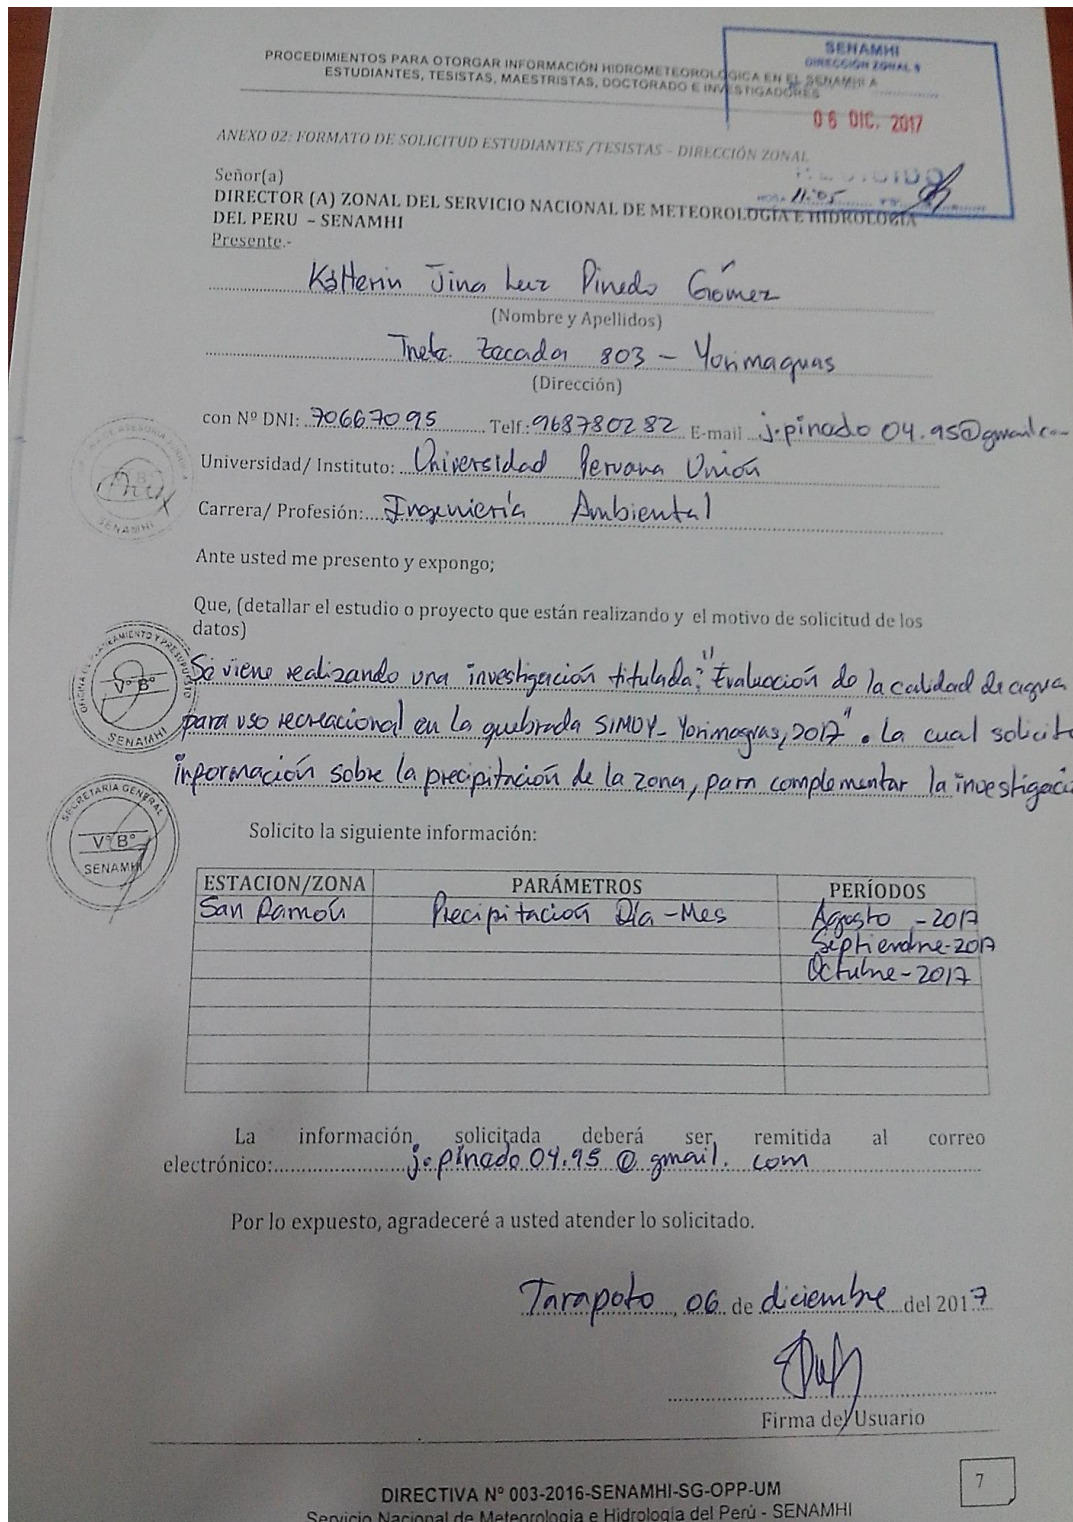 SENAMHI
DIRECCIÓN ZONAL 9
PROCEDIMIENTOS PARA OTORGAR INFORMACIÓN HIDROMETEOROLÓGICA EN EL SENAMHI A
ESTUDIANTES, TESISTAS, MAESTRISTAS, DOCTORADO E INVESTIGADORES
06 DIC. 2017
ANEXO 02: FORMATO DE SOLICITUD ESTUDIANTES /TESISTAS - DIRECCIÓN ZONAL
RECIBIDO
HORA 11:05
Señor(a)
DIRECTOR (A) ZONAL DEL SERVICIO NACIONAL DE METEOROLOGÍA E HIDROLOGÍA
DEL PERU – SENAMHI
Presente.-
Katterin Jina Luz Pinedo Gómez
(Nombre y Apellidos)
803 - Yurimaguas
(Dirección)
con Nº DNI: 70667095 Telf.: 968780282 E-mail j.pinado04.95@gmail.co
Universidad/ Instituto: Universidad Peruana Unión
Carrera/ Profesión: Ingeniería Ambiental
SENAMHI
Ante usted me presento y expongo;
Que, (detallar el estudio o proyecto que están realizando y el motivo de solicitud de los
datos)
OFICINA DE PLANEAMIENTO Y PRESUPUESTO
Vº Bº
SENAMHI
Se viene realizando una investigación titulada: "Evaluación de la calidad de agua
para uso recreacional en la quebrada SIMUY- Yurimaguas, 2017". La cual solicito
información sobre la precipitación de la zona, para complementar la investigaci
SECRETARÍA GENERAL
Vº Bº
SENAMHI
Solicito la siguiente información:
ESTACION/ZONA PARÁMETROS PERÍODOS
San Ramón Precipitación Día-Mes Agosto -2017
Septiembre-2017
Octubre-2017
La información solicitada deberá ser remitida al correo
electrónico: j.pinado04.95@gmail.com
Por lo expuesto, agradeceré a usted atender lo solicitado.
Tarapoto, 06 de diciembre del 2017
Firma del Usuario
7
DIRECTIVA Nº 003-2016-SENAMHI-SG-OPP-UM
Servicio Nacional de Meteorología e Hidrología del Perú - SENAMHI